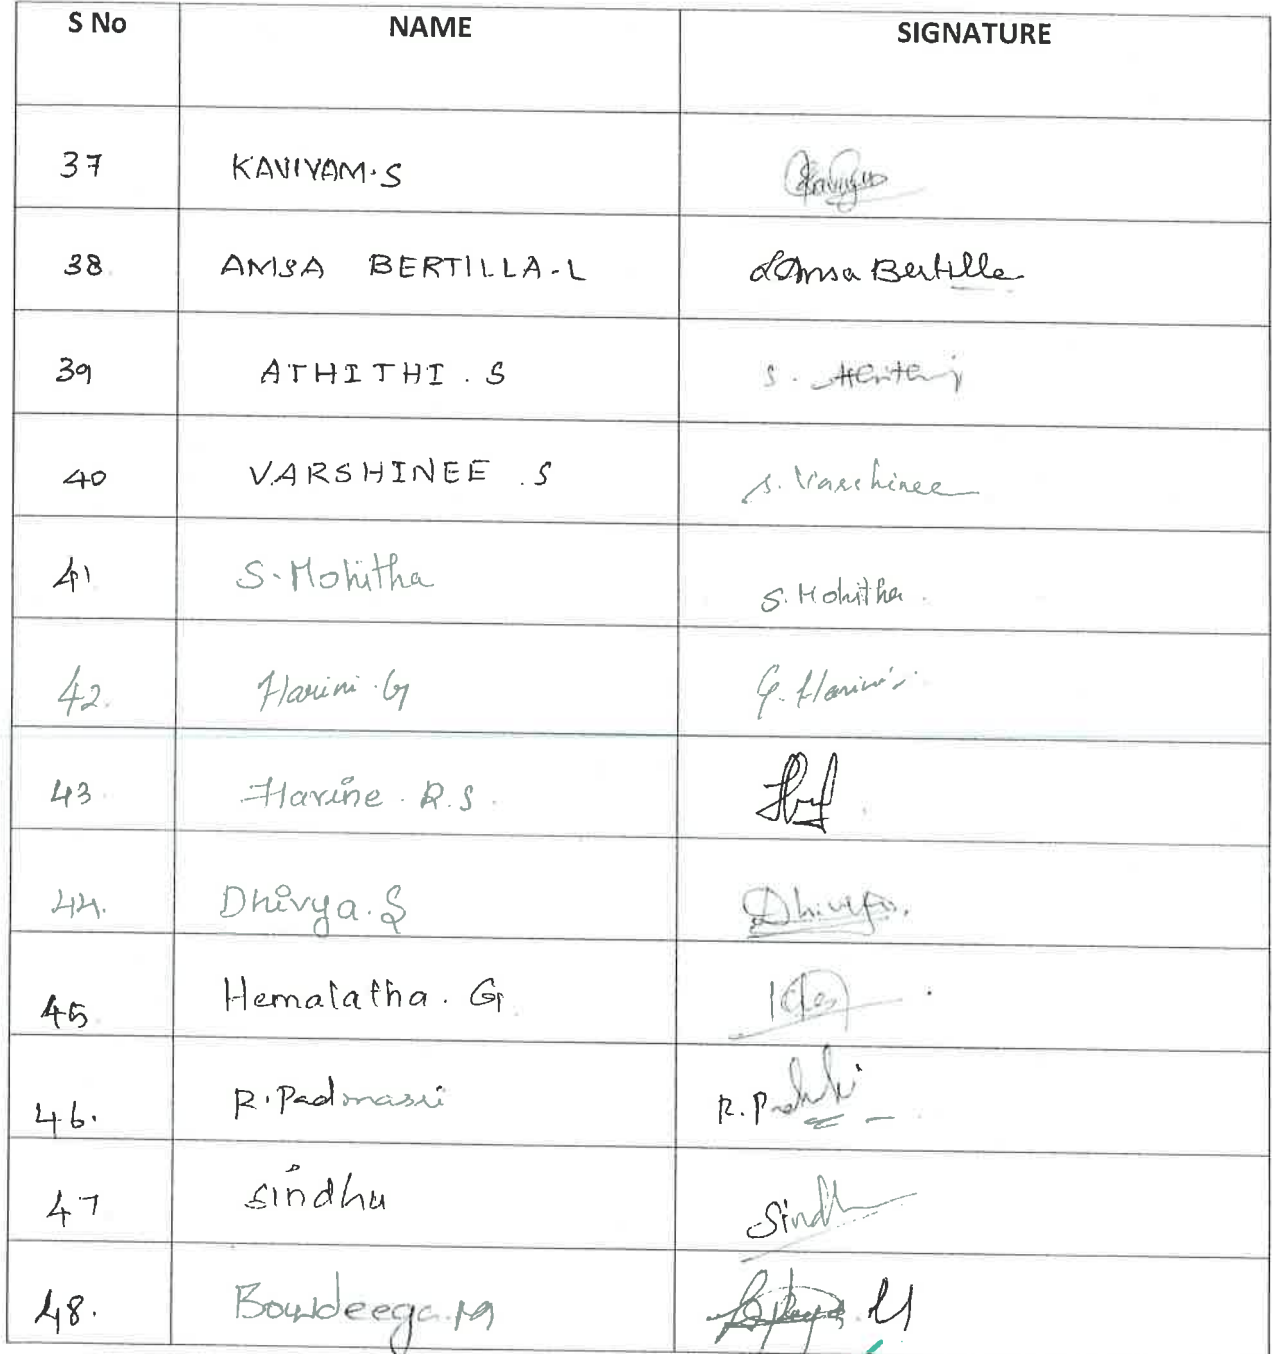 S No NAME SIGNATURE
37 KAVIYAM.S
38 AMSA BERTILLA.L L Amsa Bertilla
39 ATHITHI . S S.
40 VARSHINEE . S S. Varshinee
41 S. Mohitha S. Mohitha.
42. Harini .G G. Harini
43 Harine . R.S.
44. Dhivya. S Dhivya.
45 Hemalatha. G
46. R. Padmasri R.
47 Sindhu Sindh
48.